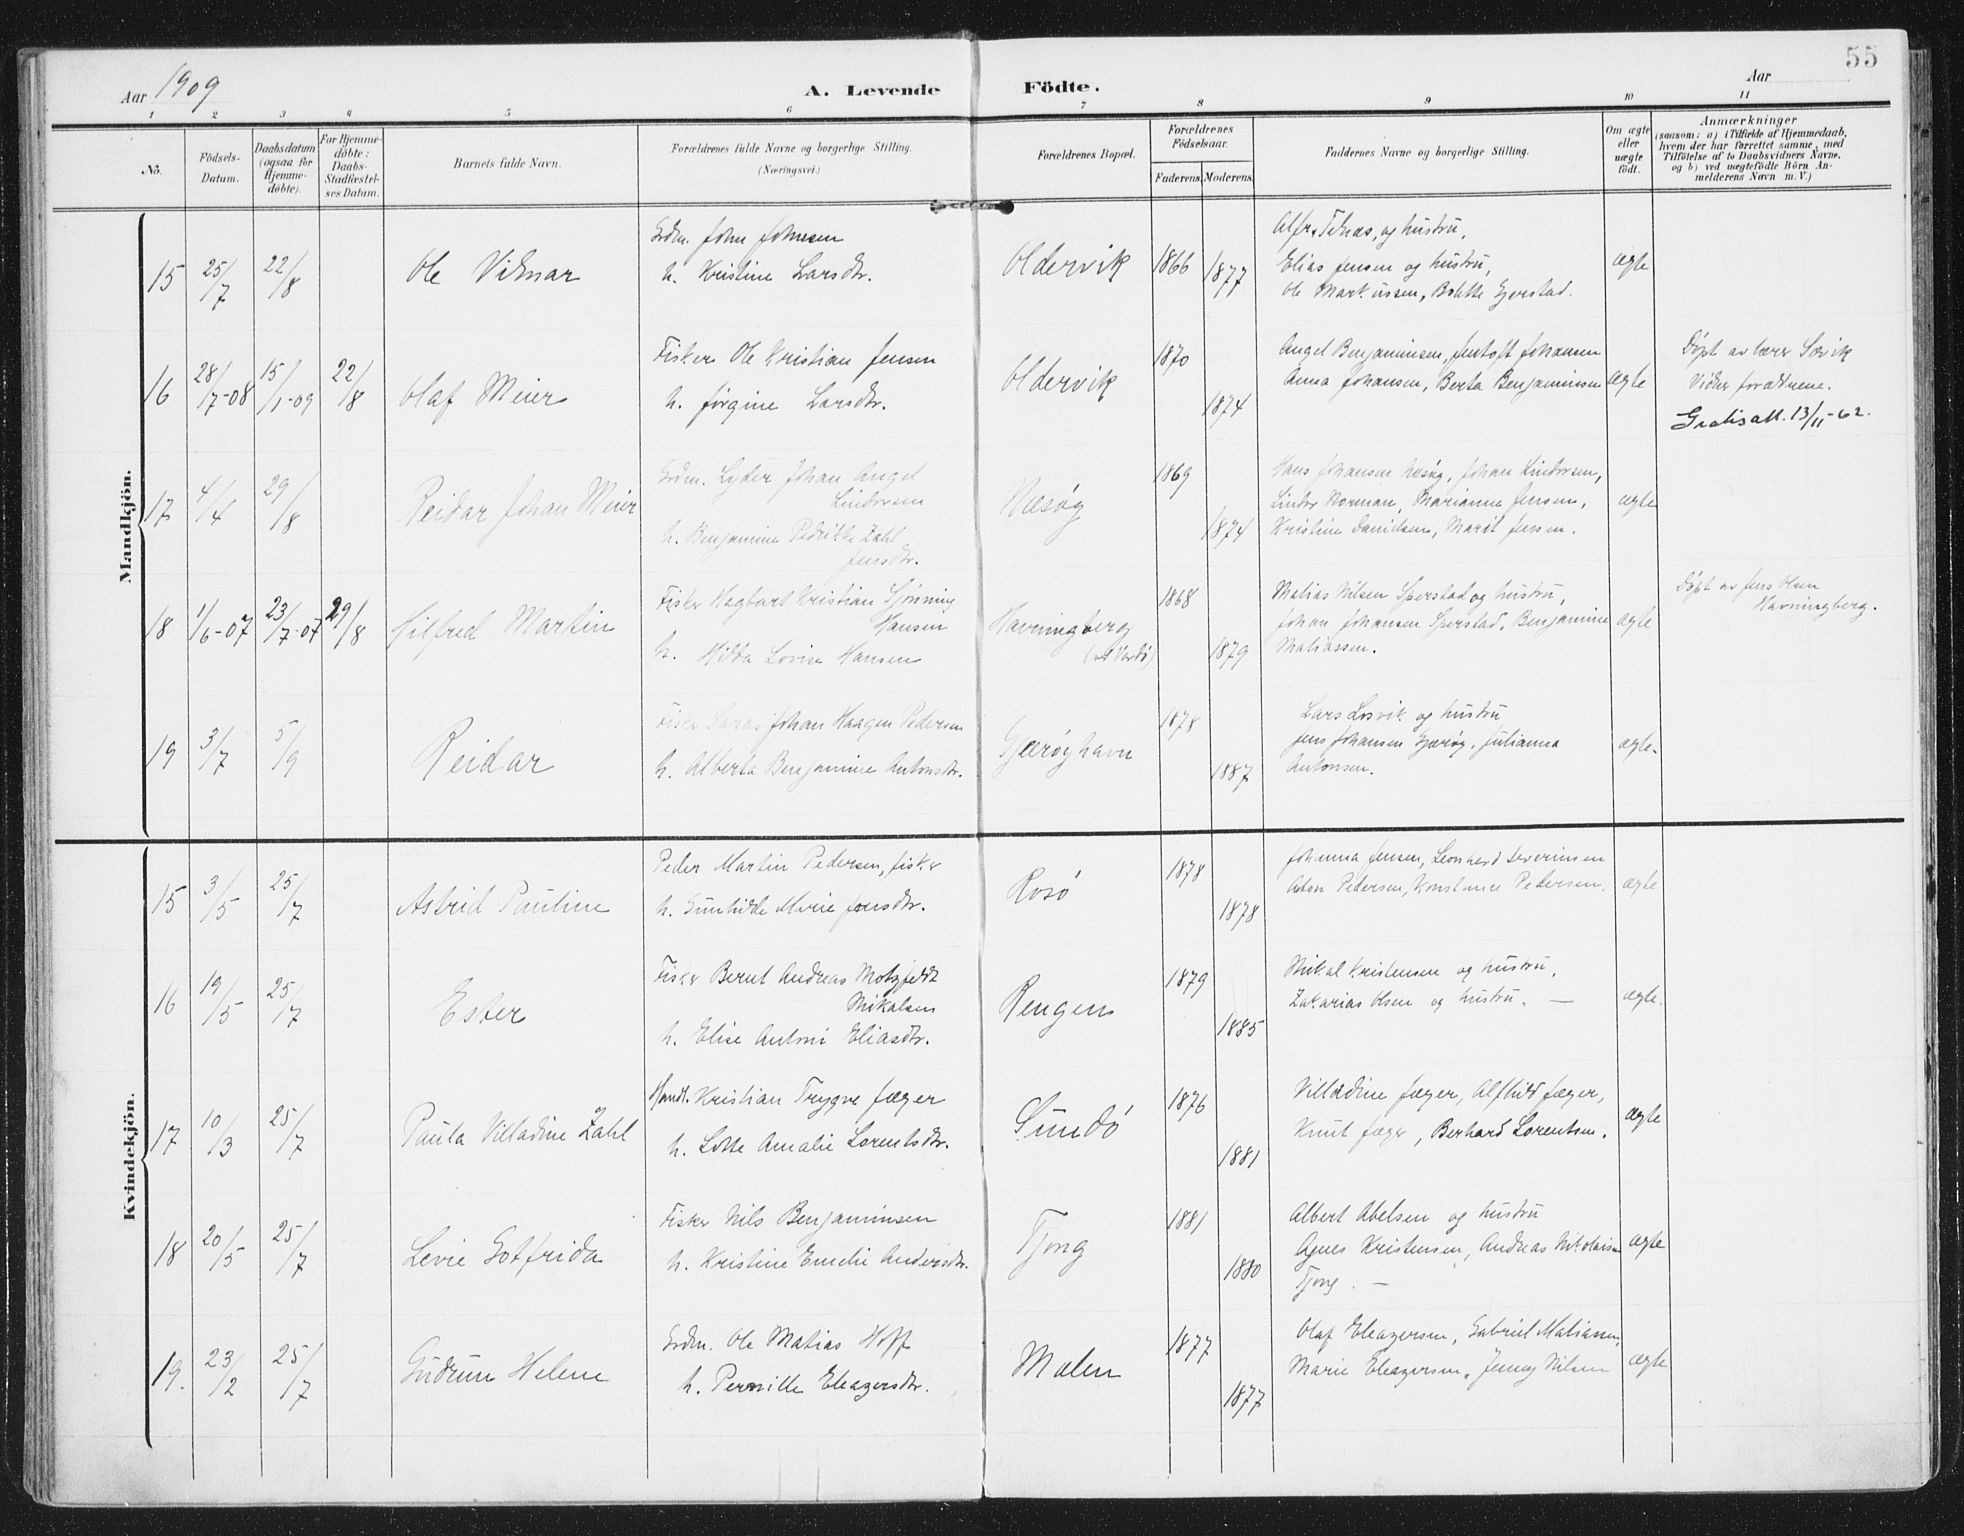 55
Aar 1909
A. Levende Födte.
Aar
1 2 3 4 5 6 7 8 9 10 11
No.
Födsels-Datum.
Daabsdatum (ogsaa for Hjemme-döbte).
For Hjemme-döbte: Daabs-Stadfæstel-ses Datum.
Barnets fulde Navn.
Forældrenes fulde Navne og borgerlige Stilling. (Næringsvei.)
Forældrenes Bopæl.
Forældrenes Födselsaar.
Faderens. Moderens.
Faddernes Navne og borgerlige Stilling.
Om ægte eller uægte födt.
Anmærkninger
(saasom: a) i Tilfælde af Hjemmedaab, hvem der har forrettet samme, med Tilföielse af to Daabsvidners Navne, og b) ved uægtefödte Börn An-melderens Navn m. V.)
Mandkjön.
15 25/7 22/8 Ole Vilmar
Grdm. John Johnsen
h. Kristine Larsdtr.
Oldervik 1866 1877
og hustru,
Elias Jensen og hustru,
Ole Markussen, Bolette
ægte
16 28/7-08 15/1-09 22/8 Olaf Meier
Fisker Ole Kristian Jensen
h. Jørgine Larsdtr.
Oldervik 1870 1874
Angel Benjaminsen, Jentoft Johansen
Anna Johansen, Berta Benjaminsen
ægte
Døpt av lærer
Vidner forældrene.
Gratisatt. 13/11-62.
17 4/4 29/8 Reidar Johan Meier
Grdm. Lyder Johan Angel
Lindorsen
h. Benjamine Pedrikke Zahl
Jensdtr.
Næsøy 1869 1874
Hans Johansen Næsøy, Johan Lindorsen,
Lindor Norman, Marianne Jensen,
Kristine Danielsen, Marit Jensen.
ægte
18 1/6-07 23/7-07 29/8 Hilfred Martin
Fisker Hagbart Kristian Sjønning
Hansen
h. Hilda Lovise Hansen
Havningberg
(v/ Vardø)
1868 1879
Matias Nilsen Sperstad og hustru,
Johan Johansen Sperstad, Benjamine
Matiassen.
ægte
Døpt av Jens Olsen
Havningberg.
19 3/7 5/9 Reidar
Fisker Johan Haagen Pedersen
h. Alberta Benjamine Antonsdtr.
Gjærøyhavn 1878 1887
Lars Losvik og hustru
Jens Johansen Gjærøy, Julianna
Antonsen.
ægte.
Kvindekjön.
15 3/5 25/7 Astrid Pauline
Peder Martin Pedersen, fisker
h. Gunhilde Marie Jensdtr.
Rosø 1878 1878
Johanna Jensen, Leonhard Severinsen
Pedersen, Konstance Pedersen.
ægte
16 19/5 25/7 Ester
Fisker Bernt Andreas Motzfeldt
Mikalsen
h. Elise Antoni Eliasdtr.
Rengen 1879 1885
Mikal Kristensen og hustru,
Zakarias Olsen og hustru. —
ægte.
17 10/3 25/7 Paula Villadine Zahl
Handl. Kristian Trygve Jæger
h. Lotte Amalie Lorentsdtr.
Sundø 1876 1881
Villadine Jæger, Alfhild Jæger,
Knut Jæger, Berhard Lorentsen.
ægte
18 20/5 25/7 Levie Gotfrida
Fisker Nils Benjaminsen
h. Kristine Emelie Andersdtr.
Tjong 1881 1880
Albert Abelsen og hustru
Agnes Kristensen, Andreas Nikolaisen
Tjong. —
ægte
19. 23/2 25/7 Gudrun Helene
Grdm. Ole Matias Hoff
h. Pernille Eleazersdtr.
Malen 1877 1877
Olaf Eleazersen, Gabriel Matiassen,
Marie Eleazersen, Jenny Nilsen
ægte